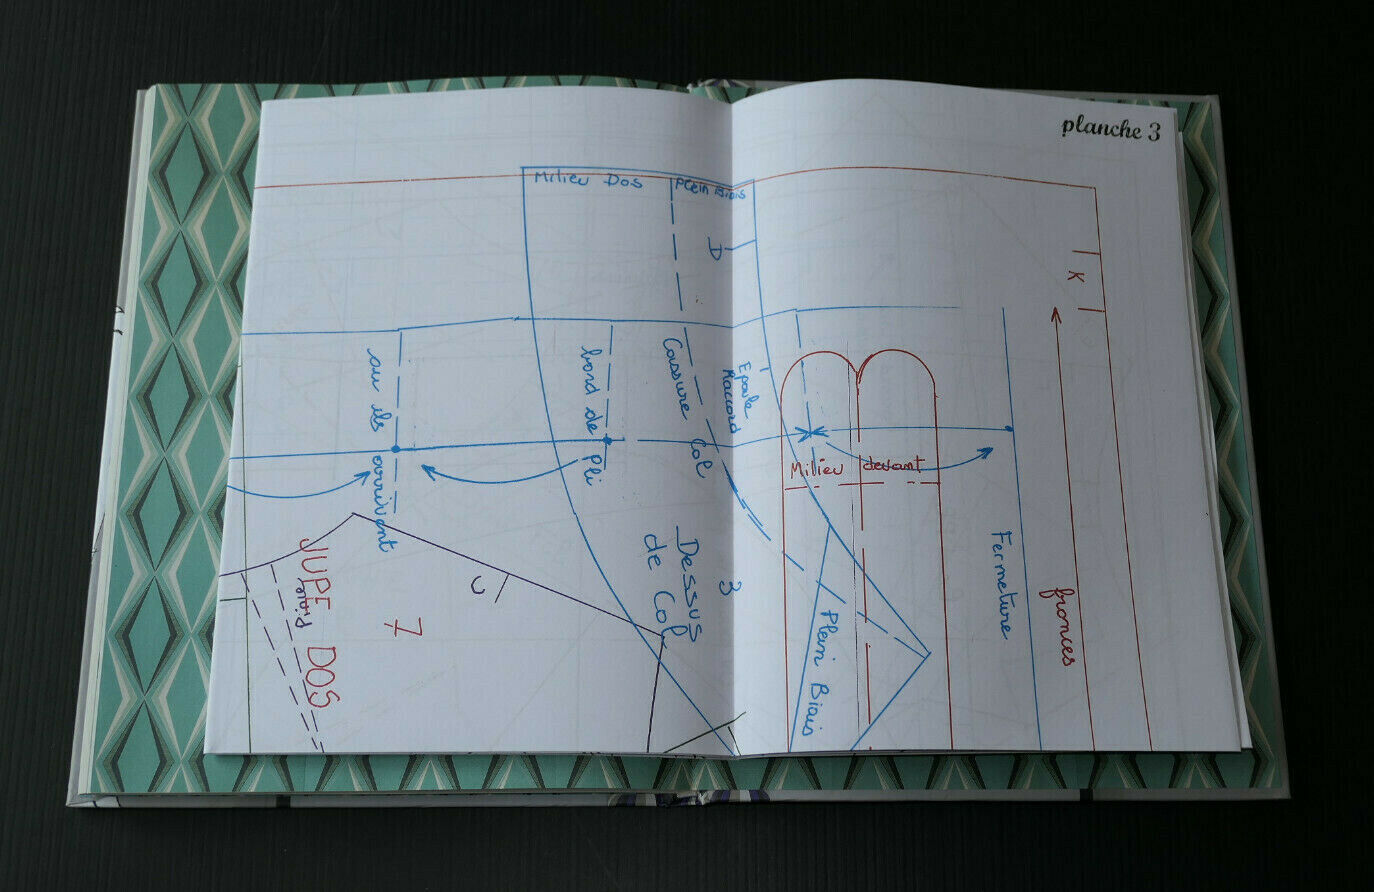 planche 3
Milieu Dos
Plein Biais
D
K
au ils arrivent
bord de Pli
Cassure Col
Epaule
Raccord
Milieu devant
Fermeture
fronces
Dessus
de Col
3
Plein Biais
C
7
JUPE DOS